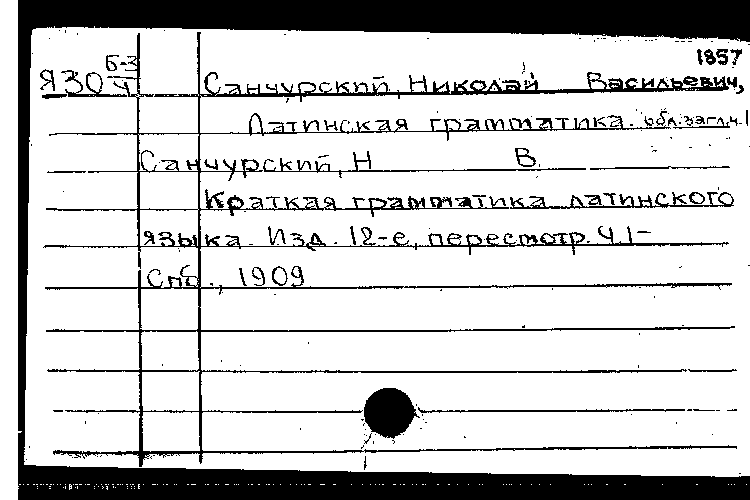 1857
Б-3
Я30 Ч Санчурский, Николай Васильевич,
Латинская грамматика. обл. загл. ч. 1
Санчурский, Н В.
Краткая грамматика латинского
языка. Изд. 12-е, пересмотр. Ч. 1-
Спб., 1909